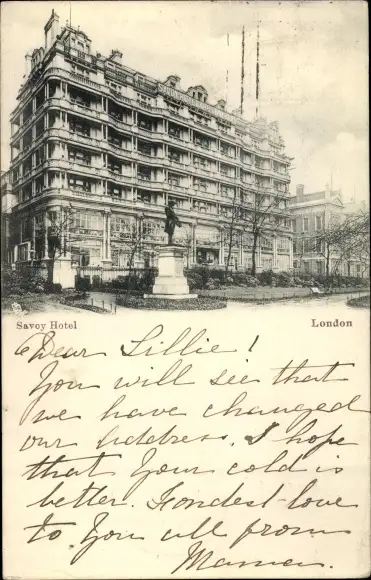 Savoy Hotel London
Dear Lillie!
You will see that
we have changed
our Address. I hope
that Your cold is
better. Fondest love
to You all from
Mamen.